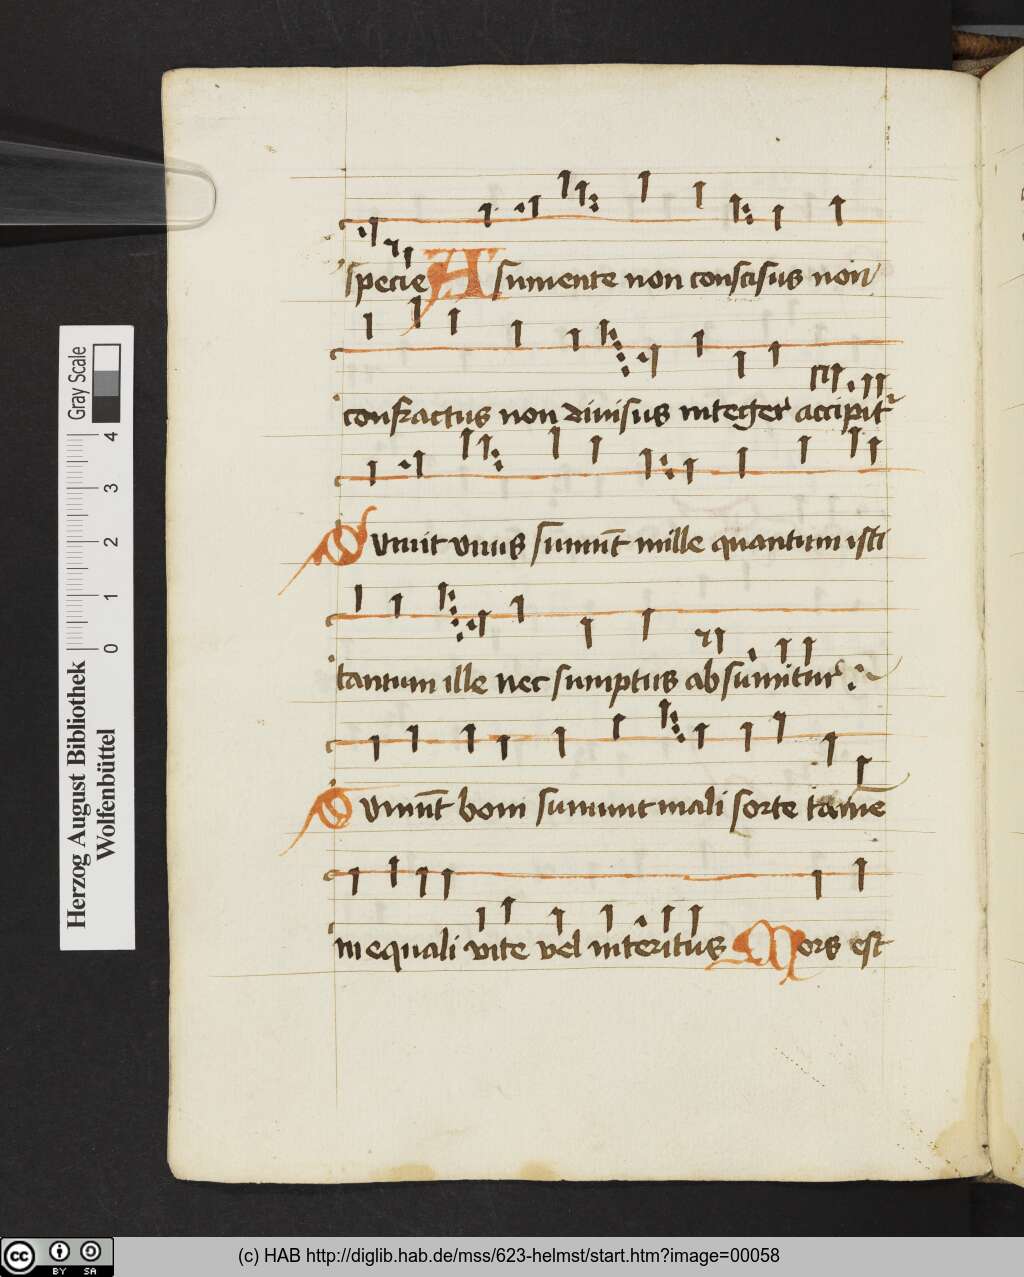 specie A sumente non conscisus non
confractus non diuisus integer accipit
Sumit unus sumūt mille quantum isti
tantum ille nec sumptus absumitur
Sumūt boni sumunt mali sorte tame
inequali vite vel interitus Mors est
Herzog August Bibliothek
Wolfenbüttel
Gray Scale
0 1 2 3 4
cc BY SA
(c) HAB http://diglib.hab.de/mss/623-helmst/start.htm?image=00058